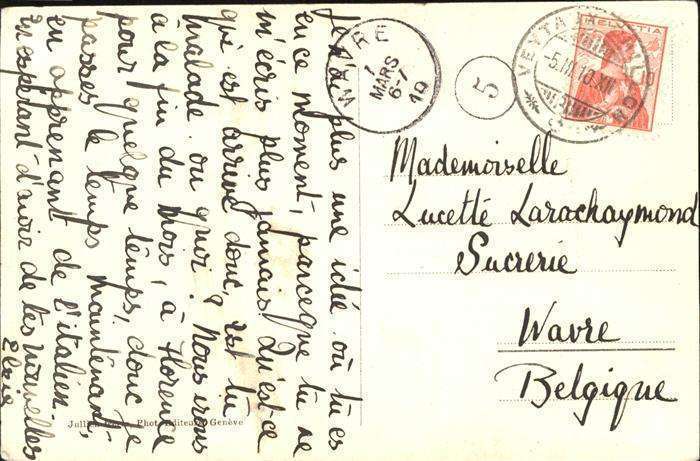 Je n'ai plus une idée où tu es
en ce moment, parceque tu ne
m'écris plus jamais. Qu'est ce
qui est arrivé donc, est tu
malade ou quoi? Nous irons
à la fin du mois, à Florence
pour quelque temps, donc je
passes le temps, maintenant,
en apprenant de l'italien.
en espérant d'avoir de tes nouvelles
Elsie
WAVRE
7
MARS
6-7
10
5
HELVETIA
VEYTAUX
-5.III.10.XII
10
Mademoiselle
Lucette Larachaymond
Sucrerie
Wavre
Belgique
Photo Editeurs, Genève